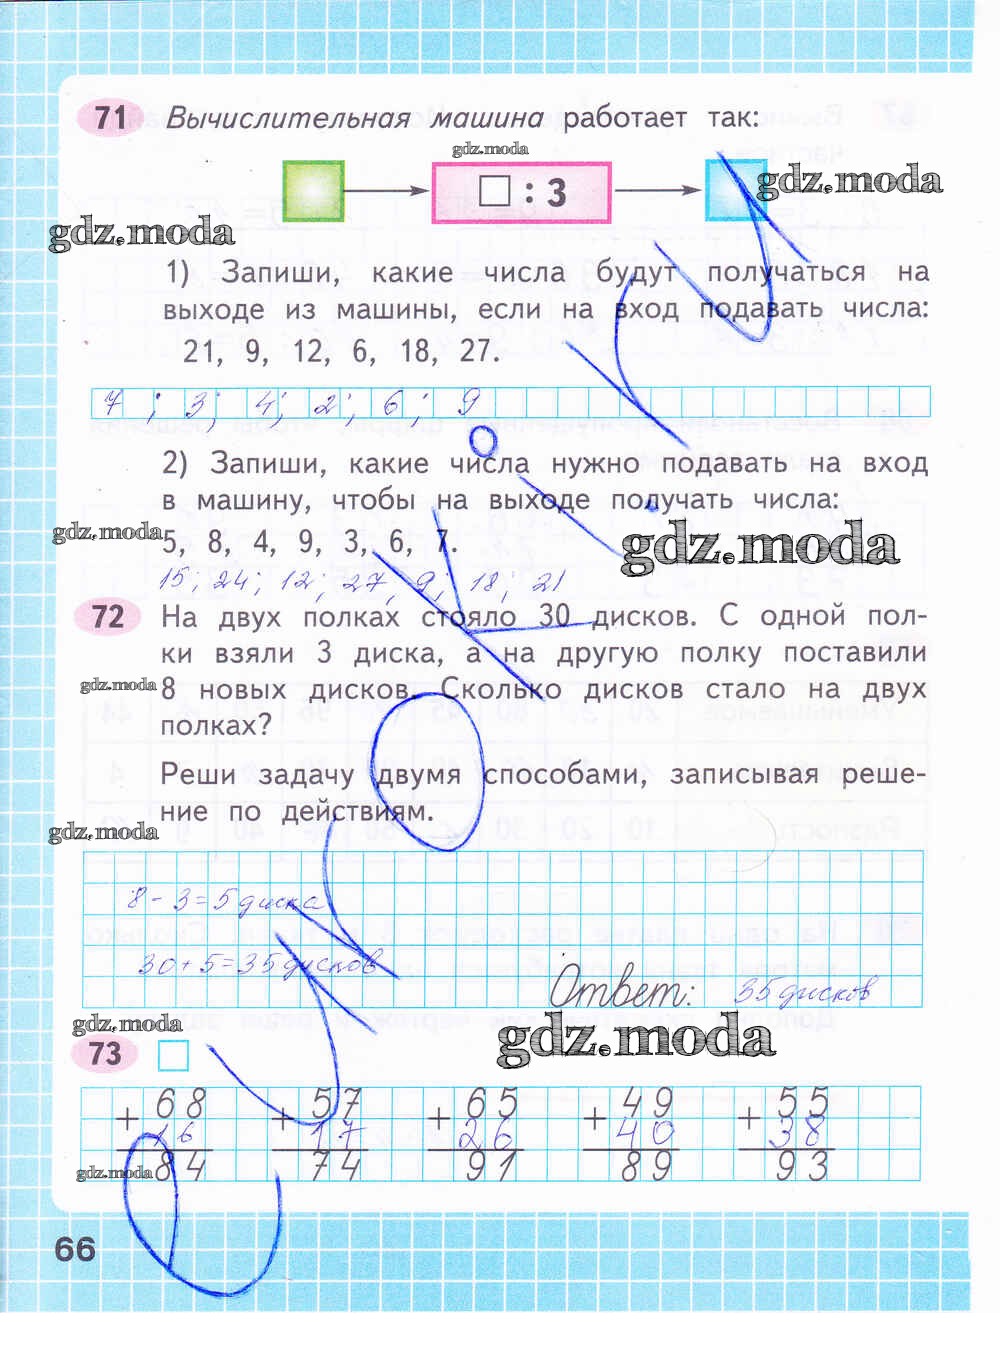 71 Вычислительная машина работает так:
gdz.moda
□ : 3
gdz.moda
gdz.moda
1) Запиши, какие числа будут получаться на
выходе из машины, если на вход подавать числа:
21, 9, 12, 6, 18, 27.
7 ; 3; 4; 2; 6; 9
2) Запиши, какие числа нужно подавать на вход
в машину, чтобы на выходе получать числа:
gdz.moda
5, 8, 4, 9, 3, 6, 7.
gdz.moda
15; 24; 12; 27; 9; 18; 21
72 На двух полках стояло 30 дисков. С одной пол-
ки взяли 3 диска, а на другую полку поставили
gdz.moda
8 новых дисков. Сколько дисков стало на двух
полках?
Реши задачу двумя способами, записывая реше-
ние по действиям.
gdz.moda
8 - 3 = 5 диска
30 + 5 = 35 дисков
Ответ: 35 дисков
gdz.moda
gdz.moda
73
68 57 65 49 55
+ + + + +
16 17 26 40 38
84 74 91 89 93
gdz.moda
66